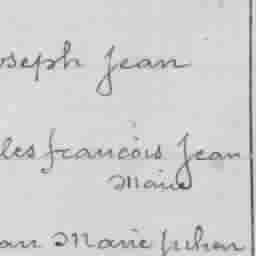 oseph Jean
les francois Jean
Marie
an Marie